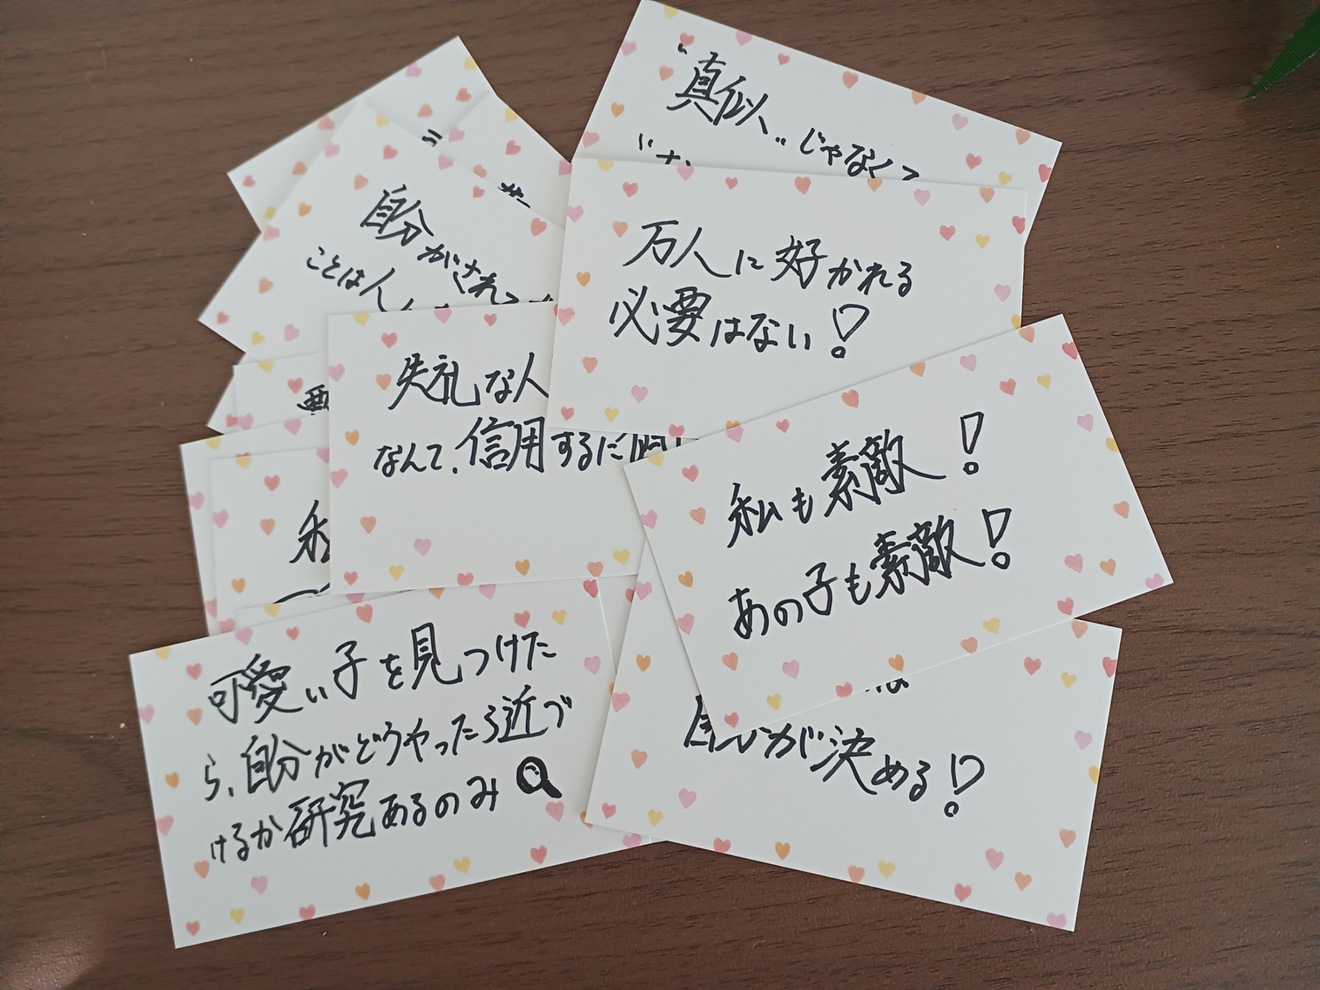 "真似"じゃなくて
自分がされて
ことは人
万人に好かれる
必要はない!
失礼な人
なんて、信用するだ
私も素敵!
あの子も素敵!
が決める!
可愛い子を見つけた
ら、自分がどうやったら近づ
けるか研究あるのみ